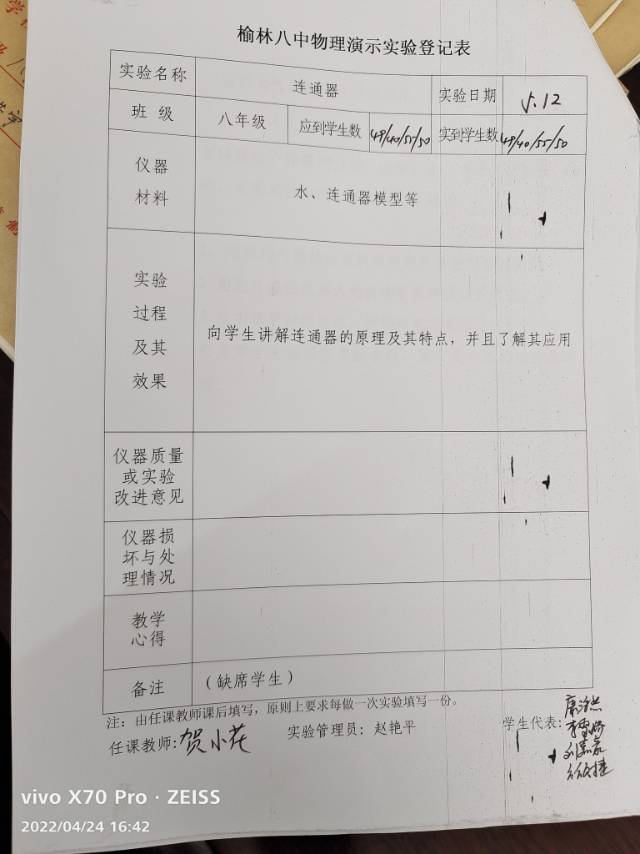 榆林八中物理演示实验登记表
实验名称 连通器 实验日期 5.12
班 级 八年级 应到学生数 49/40/51/50 实到学生数 49/40/55/50
仪器
材料
水、连通器模型等
实验
过程
及其
效果
向学生讲解连通器的原理及其特点，并且了解其应用
仪器质量
或实验
改进意见
仪器损
坏与处
理情况
教学
心得
备注 （缺席学生）
注：由任课教师课后填写，原则上要求每做一次实验填写一份。
任课教师:贺小花 实验管理员：赵艳平 学生代表:
vivo X70 Pro · ZEISS
2022/04/24 16:42